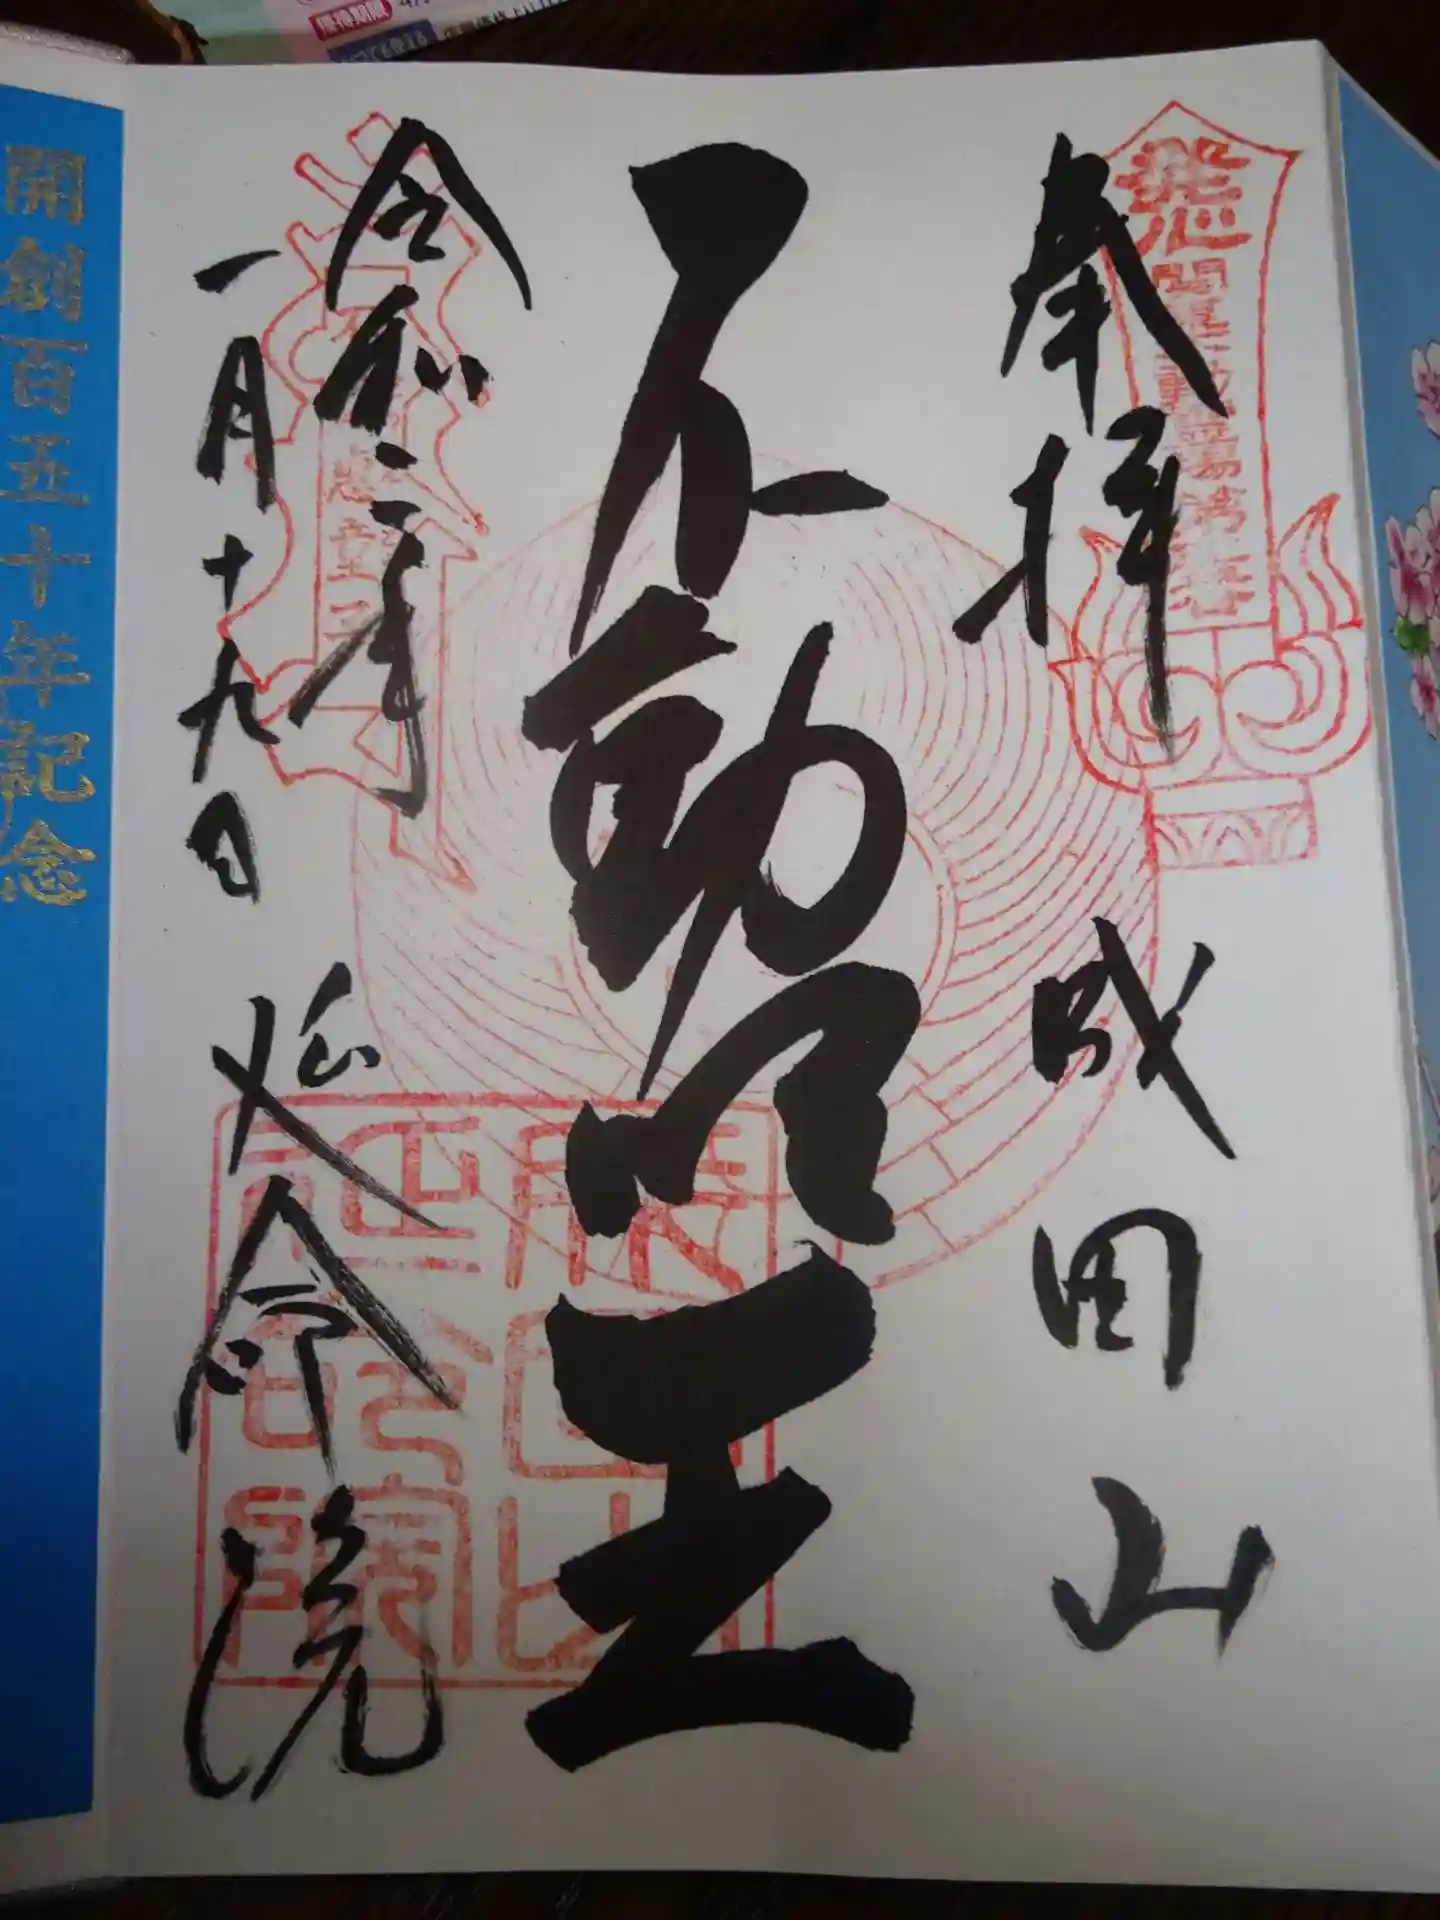 奉拝
成田山
不動明王
令和二年
一月十九日
延命院
開創百五十年記念
優待期限